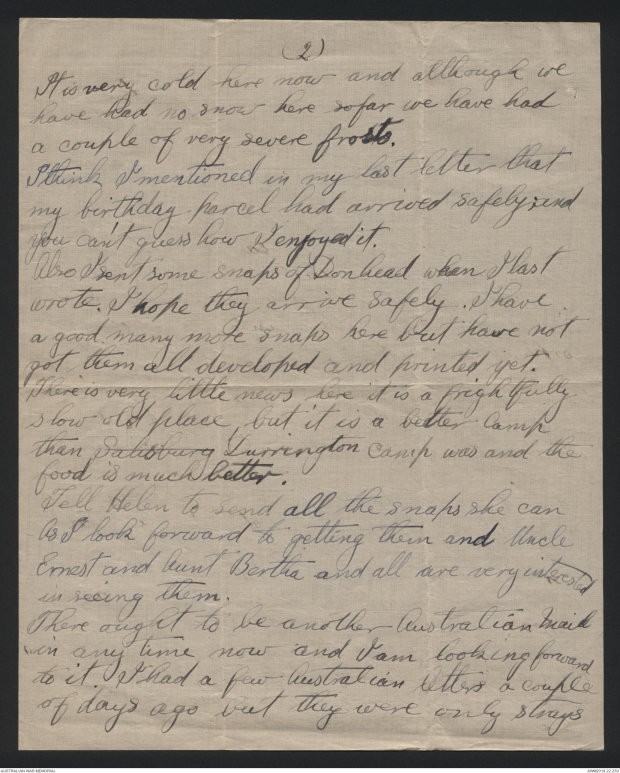 (2)
It is very cold here now and although we
have had no snow here so far we have had
a couple of very severe frosts.
I think I mentioned in my last letter that
my birthday parcel had arrived safely; and
you can't guess how I enjoyed it.
Also I sent some snaps of Donhead when I last
wrote. I hope they arrive safely. I have
a good many more snaps here but have not
got them all developed and printed yet.
There is very little news here it is a frightfully
slow old place, but it is a better camp
than Salisbury Durrington camp was and the
food is much better.
Tell Helen to send all the snaps she can
As I look forward to getting them and Uncle
Ernest and Aunt Bertha and all are very interested
in seeing them.
There ought to be another Australian Mail
in any time now and I am looking forward
to it. I had a few Australian letters a couple
of days ago but they were only strays
AUSTRALIAN WAR MEMORIAL